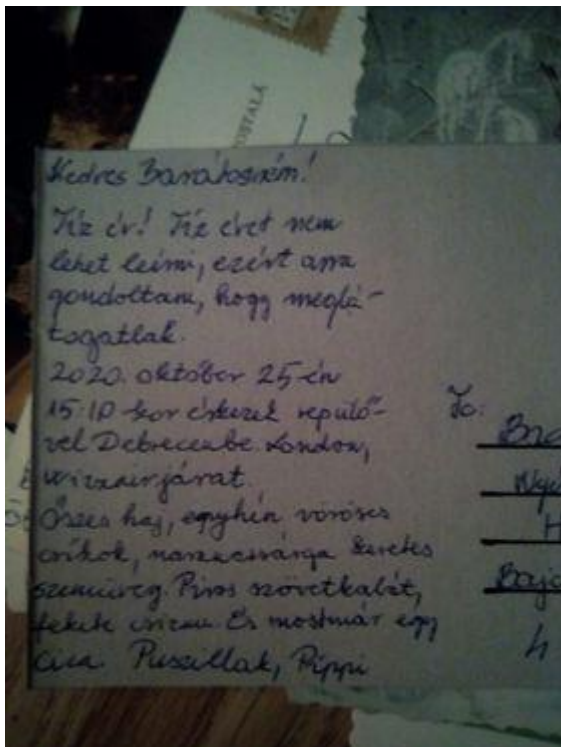 POSTALĂ
Kedves Barátosném!
Tíz év! Tíz évet nem
lehet leírni, ezért arra
gondoltam, hogy meglá-
togatlak.
2020. október 25-én
15:10-kor érkezek repülő-
vel Debrecenbe. London,
wizzairjárat.
Őszes haj, egyhén vöröses
csíkok, narancssárga keretes
szemüveg. Piros szövetkabát,
fekete csizma. És mostmár egy
cica. Puszillak, Pippi
To:
H
Bajc
4